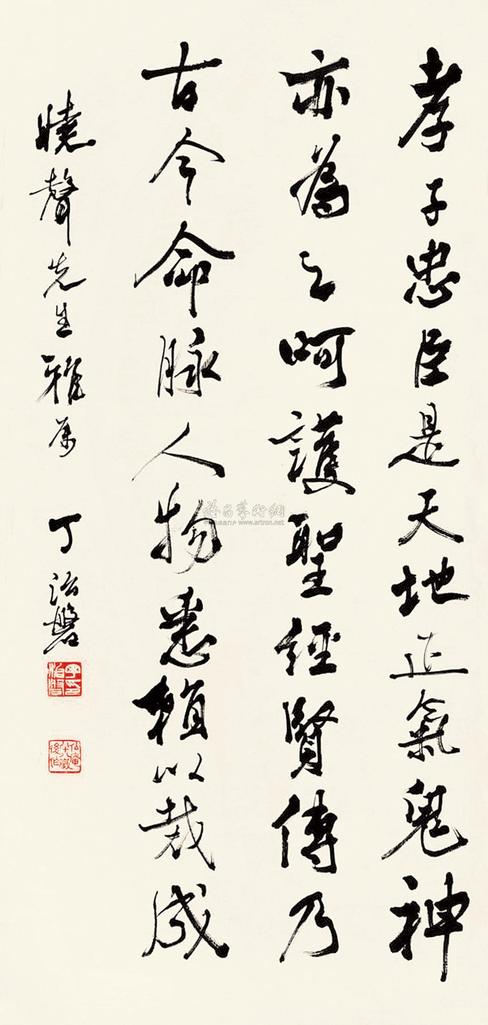 孝子忠臣是天地正氣鬼神
亦為之呵護聖經賢傳乃
古今命脉人物悉賴以裁成
曉聲先生雅屬
丁治磐
www.artron.net